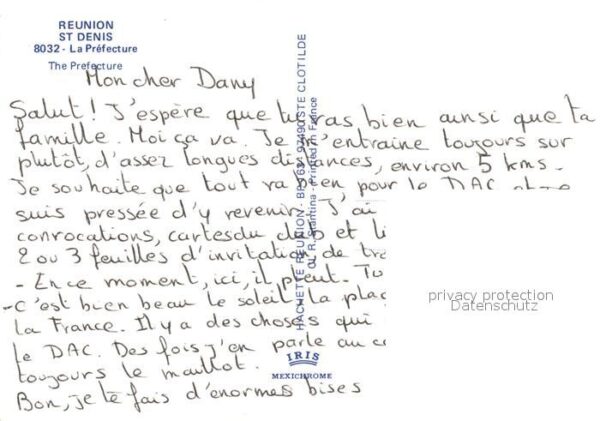 REUNION
ST DENIS
8032 - La Préfecture
The Prefecture
Mon cher Dany
Salut! J'espère que tu vas bien ainsi que ta
famille. Moi ça va. Je m'entraine toujours sur
plutôt, d'assez longues distances, environ 5 kms.
Je souhaite que tout va bien pour le DAC
suis pressée d'y revenir. J'ai
convocations, cartes du club et
2 ou 3 feuilles d'invitation de
- En ce moment, ici, il pleut.
- c'est bien beau le soleil, la
la France. Il y a des choses qui
le DAC. Des fois j'en parle au
toujours le maillot.
Bon, je te fais d'énormes bises
HACHETTE REUNION - STE CLOTILDE
Printed in France
IRIS
MEXICHROME
privacy protection
Datenschutz